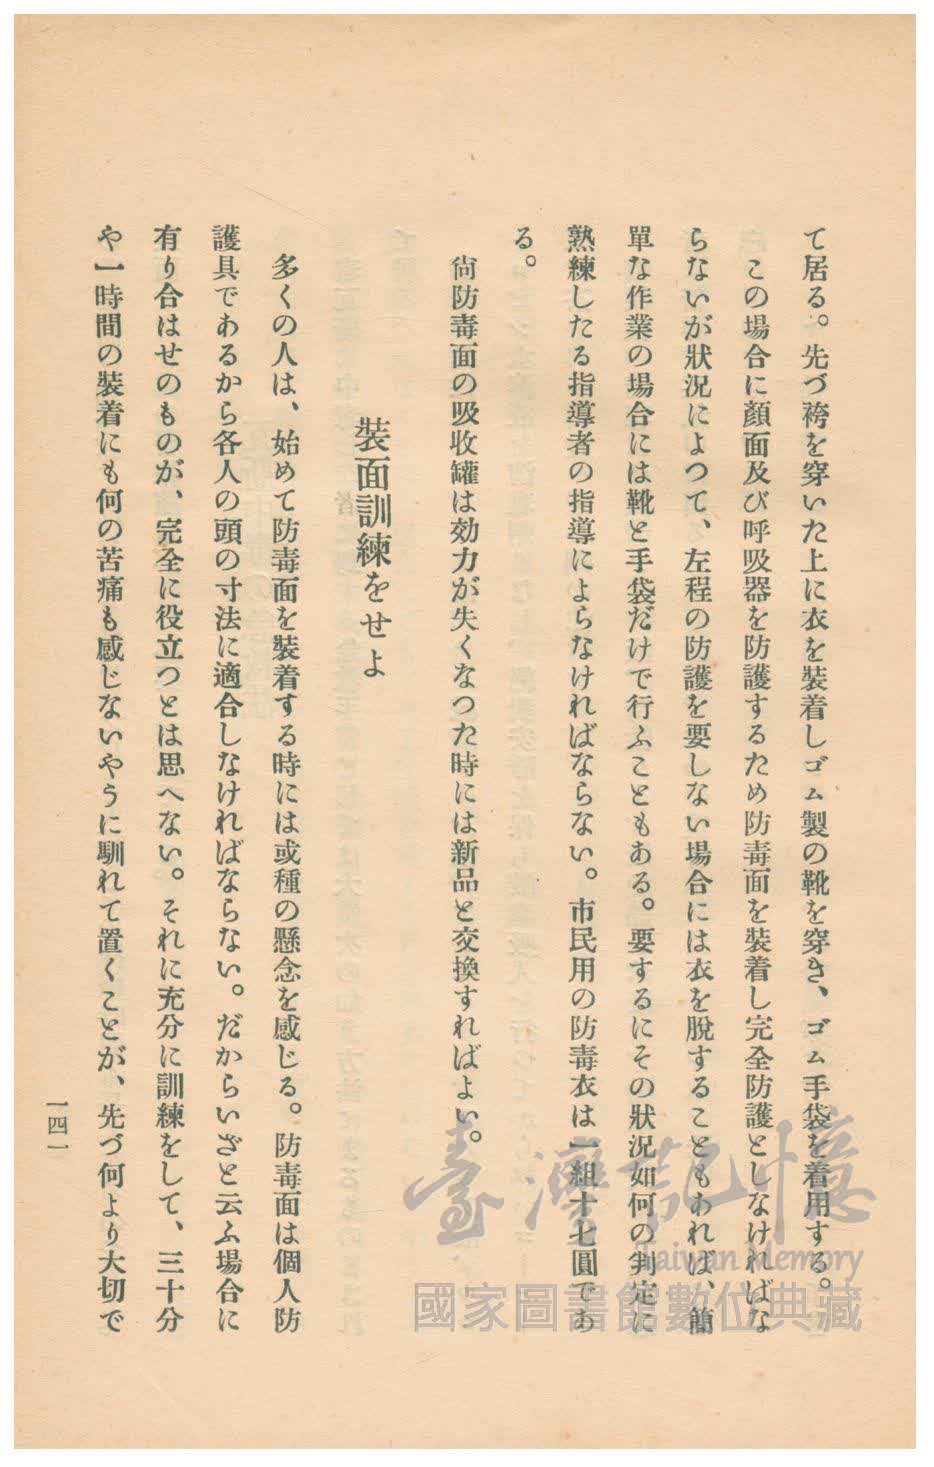 て居る。先づ袴を穿いた上に衣を裝着しゴム製の靴を穿き、ゴム手袋を着用する。
この場合に顏面及び呼吸器を防護するため防毒面を裝着し完全防護としなければな
らないが狀況によつて、左程の防護を要しない場合には衣を脫することもあれば、簡
單な作業の場合には靴と手袋だけで行ふこともある。要するにその狀況如何の判定に
熟練したる指導者の指導によらなければならない。市民用の防毒衣は一組十七圓であ
る。
尙防毒面の吸收罐は効力が失くなつた時には新品と交換すればよい。
裝面訓練をせよ
多くの人は、始めて防毒面を裝着する時には或種の懸念を感じる。防毒面は個人防
護具であるから各人の頭の寸法に適合しなければならない。だからいざと云ふ場合に
有り合はせのものが、完全に役立つとは思へない。それに充分に訓練をして、三十分
や一時間の裝着にも何の苦痛も感じないやうに馴れて置くことが、先づ何より大切で
一四一
臺灣記憶
Taiwan Memory
國家圖書館數位典藏